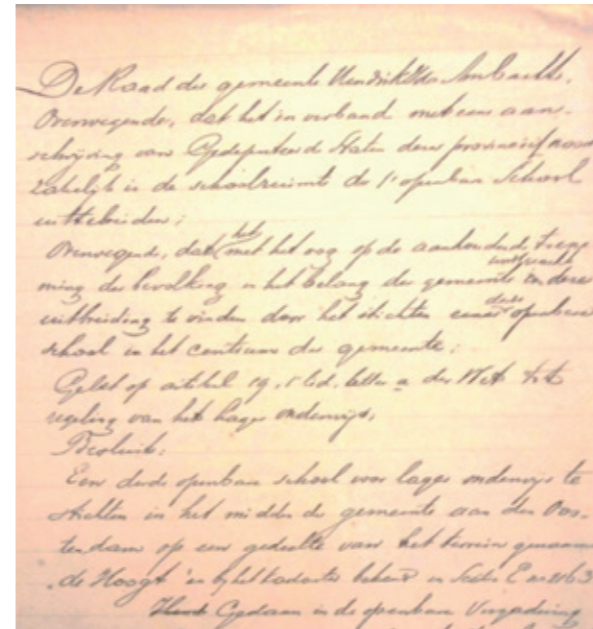 De Raad der gemeente Hendrik Ido Ambacht,
Overwegende, dat het in verband met eene aan-
schrijving van Gedeputeerde Staten dezer provincie nood
zakelijk is de schoolruimte der 1e openbare School
uittebreiden;
Overwegende, dat het met het oog op de aanhoudende toene
ming der bevolking in het belang der gemeente is deze
uitbreiding te vinden door het stichten eener derde openbare
school in het centrum der gemeente;
Gelet op artikel 19, 1e lid, letter a der Wet tot
regeling van het lager onderwijs,
Besluit:
Een derde openbare school voor lager onderwijs te
stichten in het midden der gemeente aan den Oos-
tendam op een gedeelte van het terrein genaamd
"de Hoogt" en bij het Kadaster bekend in Sectie E no
Gedaan in de openbare Vergadering